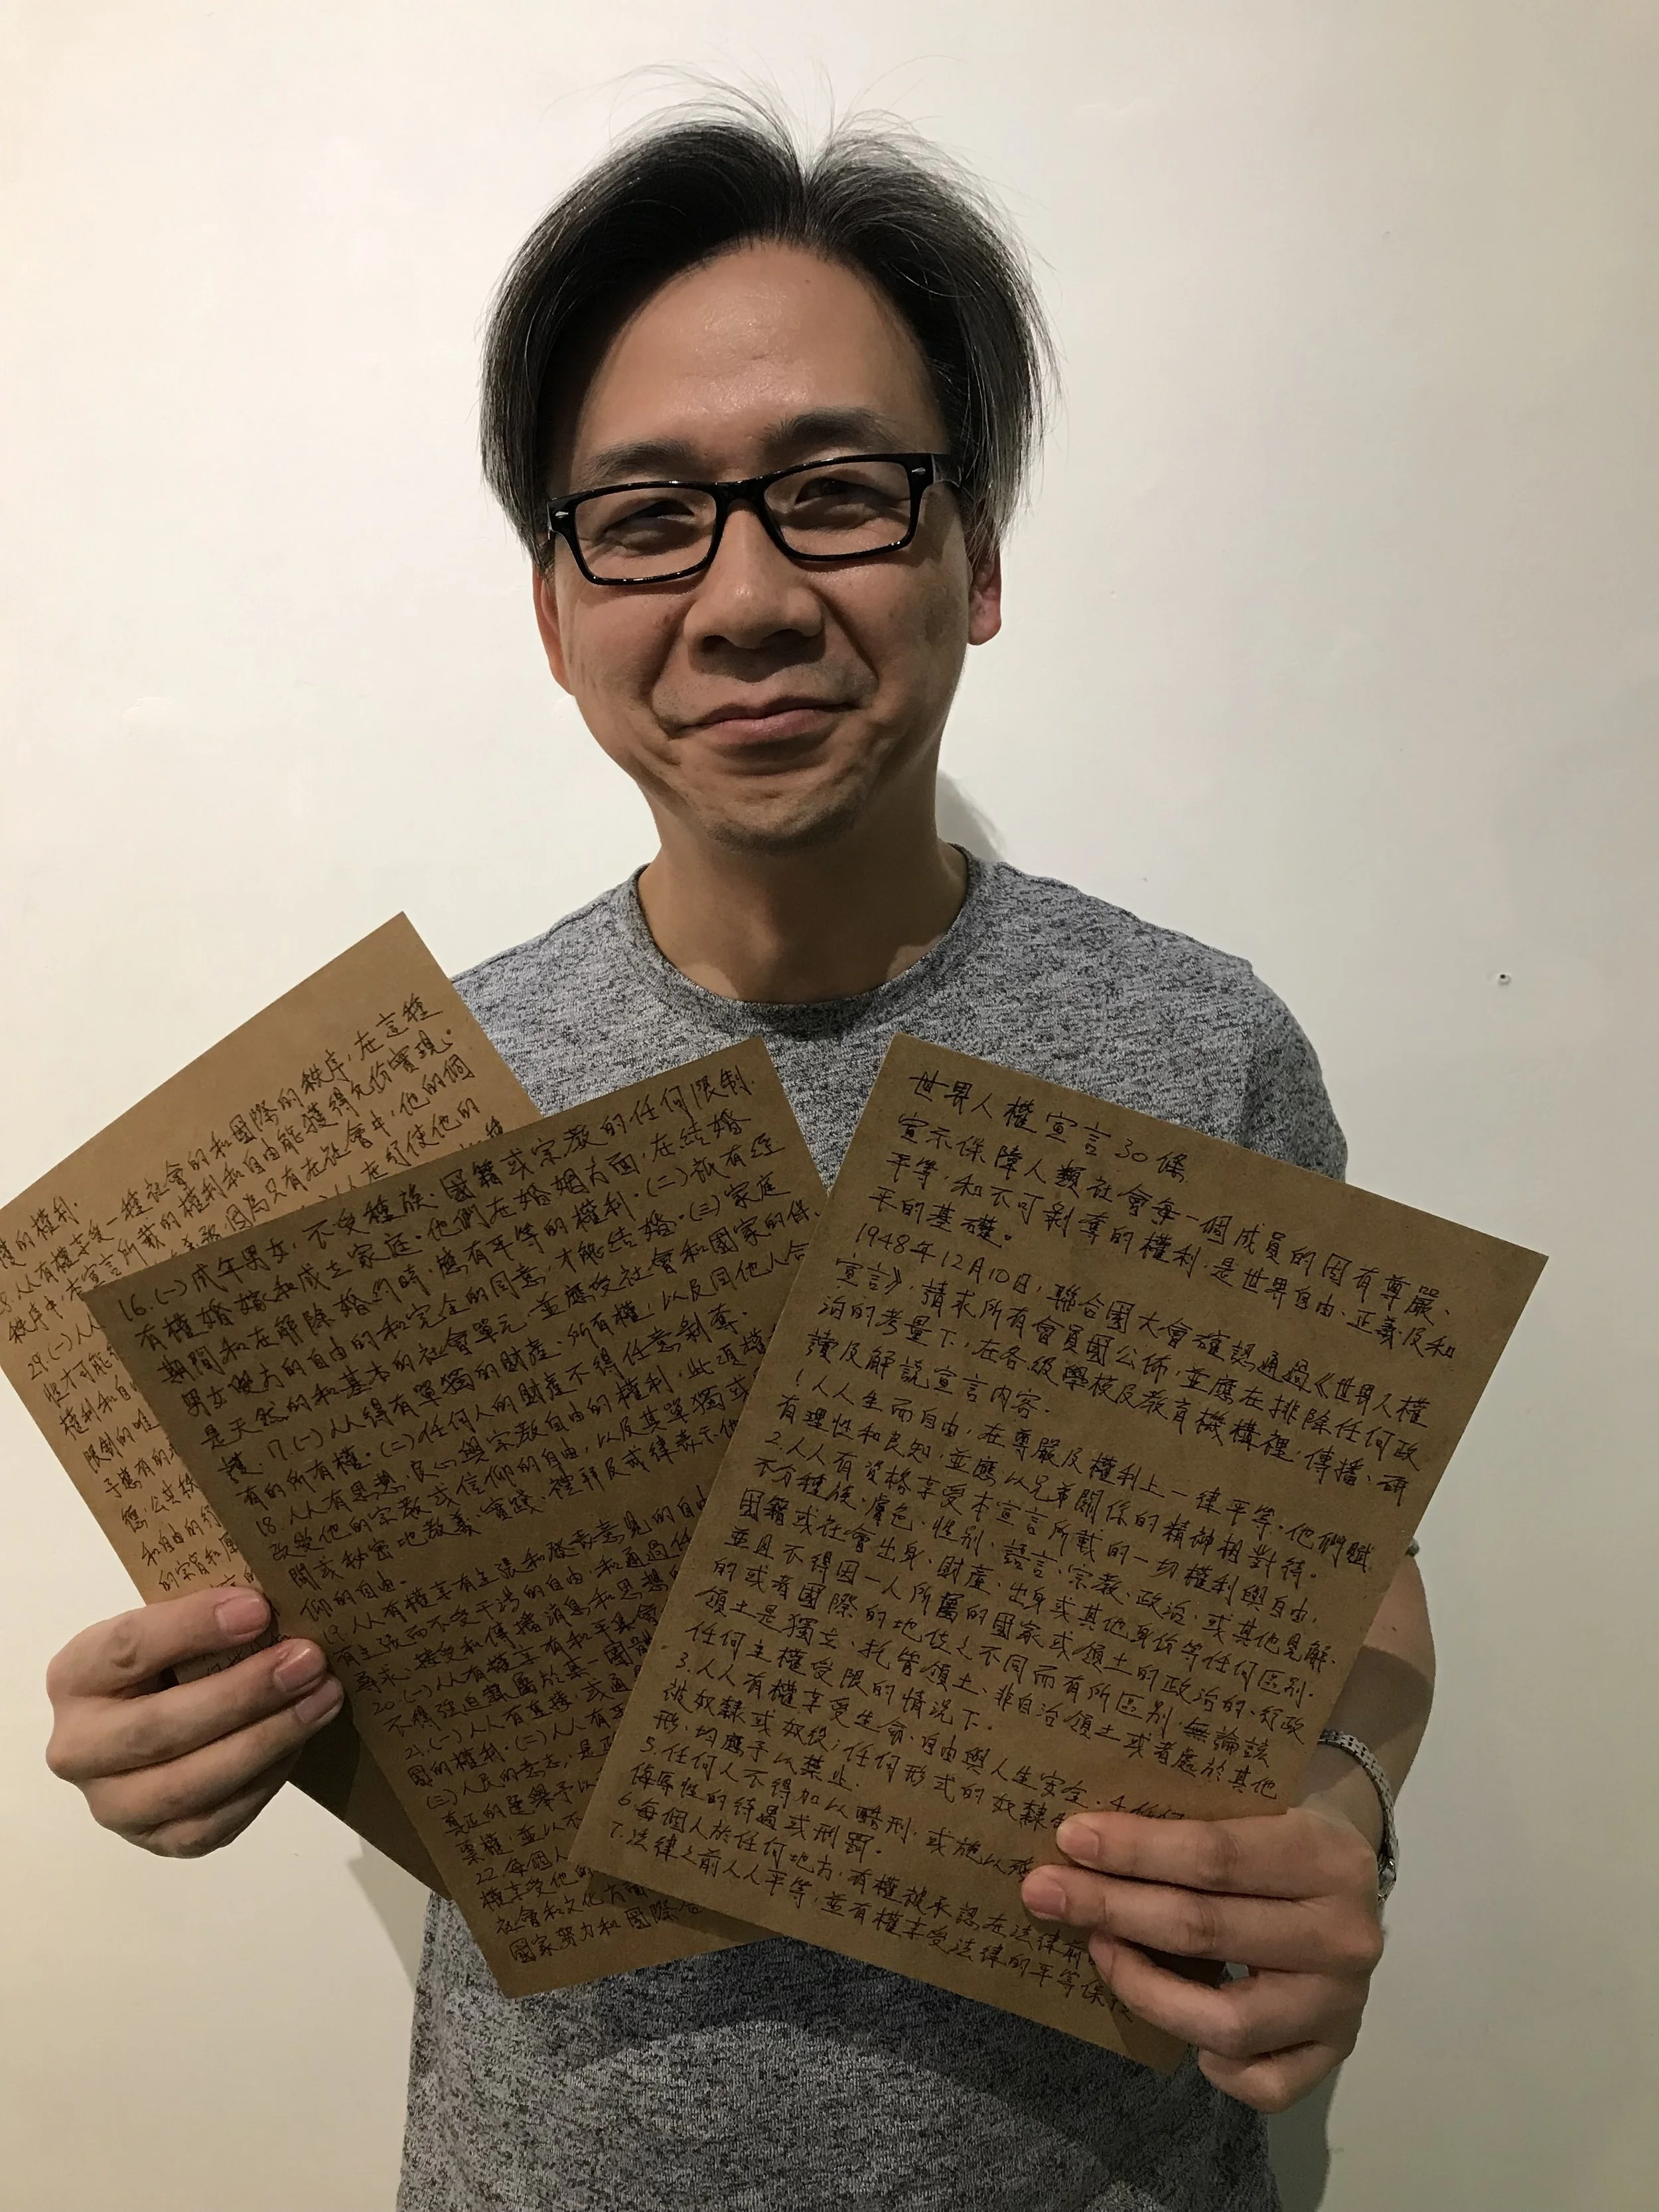 世界人權宣言30條
宣示保障人類社會每一個成員的固有尊嚴、
平等,和不可剝奪的權利,是世界自由、正義及和
平的基礎。
1948年12月10日,聯合國大會確認通過《世界人權
宣言》,請求所有會員國公佈,並應在排除任何政
治的考量下,在各級學校及教育機構裡,傳播、研
讀及解說宣言內容.
1.人人生而自由,在尊嚴及權利上一律平等。他們賦
有理性和良知,並應以兄弟關係的精神相對待。
2.人人有資格享受本宣言所載的一切權利與自由,
不分種族、膚色、性別、語言、宗教、政治、或其他見解.
國籍或社會出身、財產、出身或其他身份等任何區別.
並且不得因一人所屬的國家或領土的政治的、行政
的或者國際的地位之不同而有所區別.無論該
領土是獨立、托管領土、非自治領土或者處於其他
任何主權受限的情況下.
3.人人有權享受生命、自由與人生安全.4.任何
被奴隸或奴役;任何形式的奴隸
形,均應予以禁止.
5.任何人不得加以酷刑,或施以殘
侮辱性的待遇或刑罰.
6.每個人於任何地方,有權被承認在法律前
7.法律之前人人平等,並有權享受法律的平等保
16.(一)成年男女,不受種族、國籍或宗教的任何限制.
有權婚婚和成立家庭.他們在婚姻方面,在結婚
期間和在解除婚約時,應有平等的權利.(二)祇有經
男女雙方的自由的和完全的同意,才能結婚.(三)家庭
是天然的和基本的社會單元,並應受社會和國家的保.
護.17.(一)人人得有單獨的財產,所有權,以及同他人合
有的所有權.(二)任何人的財產不得任意剝奪.
18.人人有思想、良心與宗教自由的權利,此項權
改變他的宗教或信仰的自由,以及其單獨或
開或秘密地教義、實踐、禮拜及戒律表示他
仰的自由.
19.人人有權享有主張和發表意見的自由
有主張而不受干涉的自由,和通過任
尋求、接受和傳播消息和思想的
20.(一)人人有權享有和平集會
不得強迫隸屬於某一團體
21.(一)人人有直接,或通
國的權利.(二)人人有平
(三)人民的意志,是政
真正的選舉予以
票權,並以不
22.每個人
權享受他的
社會和文化方面
國家努力和國際合
的權利.
人人有權享受一種社會的和國際的秩序,在這種
秩序中,本宣言所載的權利和自由能獲得充份實現.
29.(一)人人 因為只有在社會中,他的個
性才可能 人在行使他的
權利和自
限制的唯
予應有的
德、公共秩
和自由的行
的宗旨和原